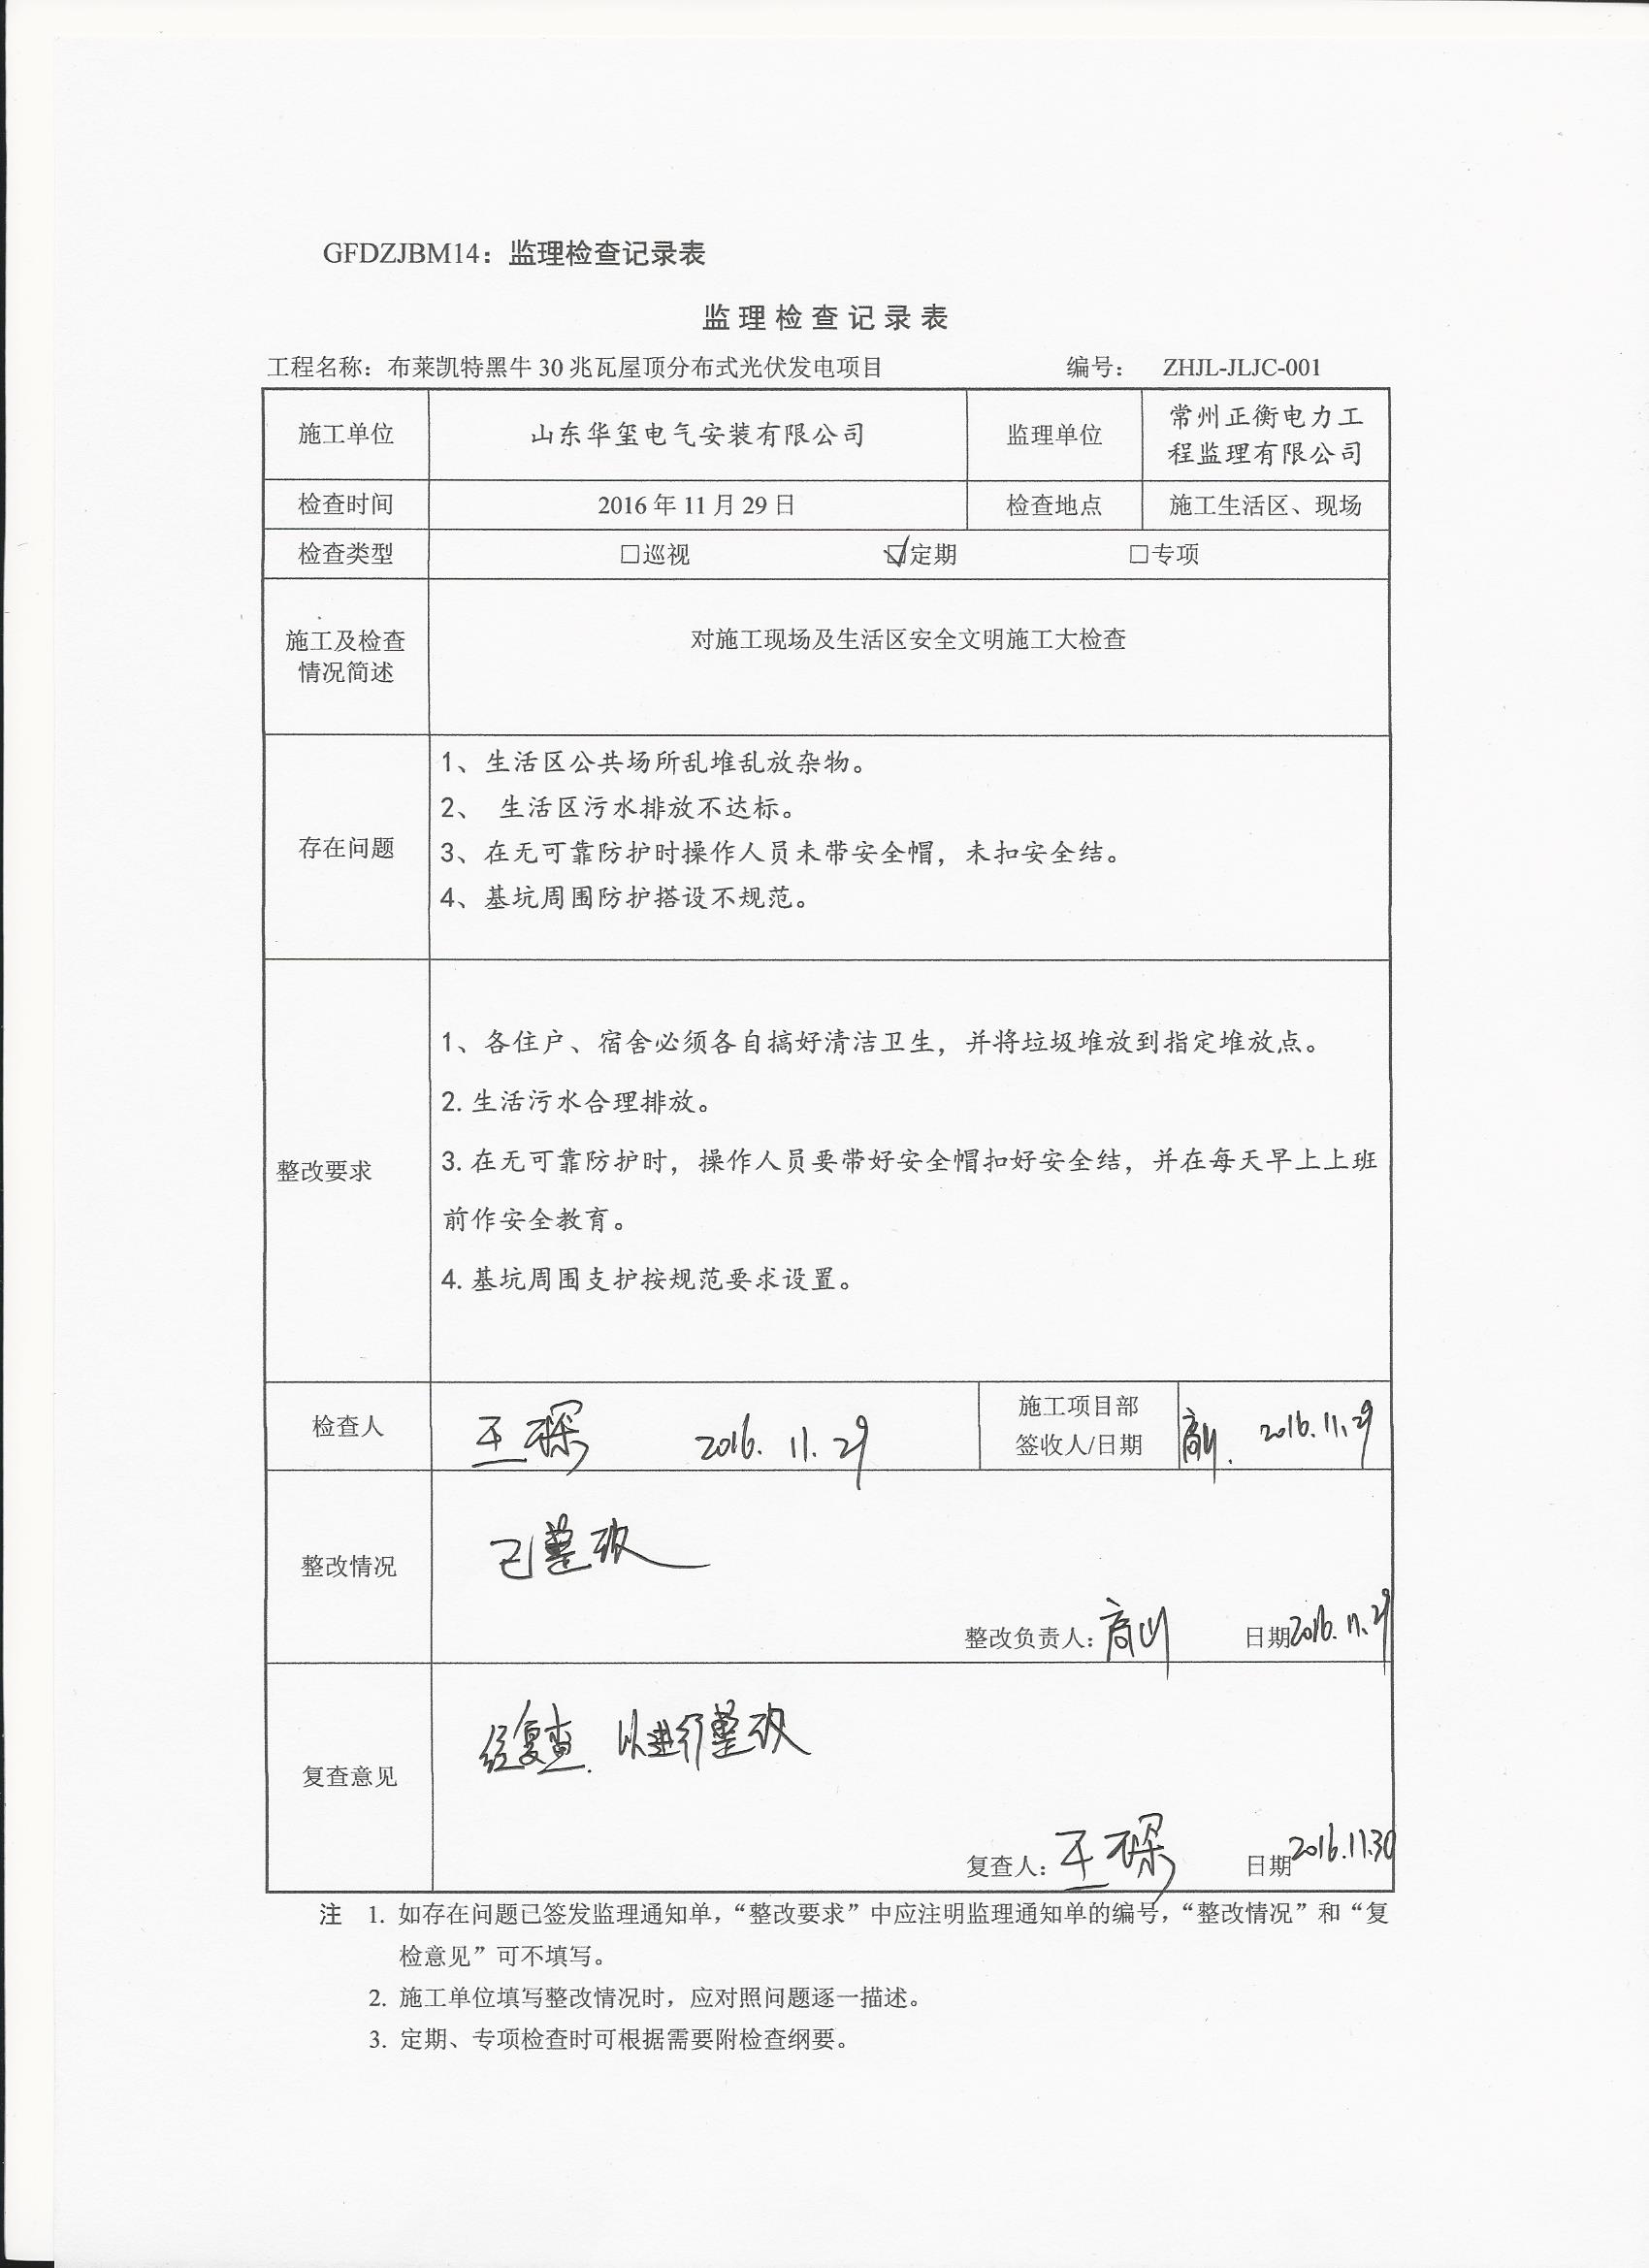 GFDZJBM14：监理检查记录表
监理检查记录表
工程名称：布莱凯特黑牛 30 兆瓦屋顶分布式光伏发电项目 编号： ZHJL-JLJC-001
施工单位 山东华玺电气安装有限公司 监理单位 常州正衡电力工
程监理有限公司
检查时间 2016 年 11 月 29 日 检查地点 施工生活区、现场
检查类型 □巡视 ☑定期 □专项
施工及检查
情况简述
对施工现场及生活区安全文明施工大检查
存在问题
1、生活区公共场所乱堆乱放杂物。
2、 生活区污水排放不达标。
3、在无可靠防护时操作人员未带安全帽，未扣安全结。
4、基坑周围防护搭设不规范。
整改要求
1、各住户、宿舍必须各自搞好清洁卫生，并将垃圾堆放到指定堆放点。
2.生活污水合理排放。
3.在无可靠防护时，操作人员要带好安全帽扣好安全结，并在每天早上上班
前作安全教育。
4.基坑周围支护按规范要求设置。
检查人 王琛 2016. 11. 29
施工项目部
签收人/日期
高山. 2016.11.29
整改情况
已整改
整改负责人：高山 日期2016.11.29
复查意见
经复查. 以进行整改
复查人：王琛 日期2016.11.30
注 1. 如存在问题已签发监理通知单，“整改要求”中应注明监理通知单的编号，“整改情况”和“复
检意见”可不填写。
2. 施工单位填写整改情况时，应对照问题逐一描述。
3. 定期、专项检查时可根据需要附检查纲要。